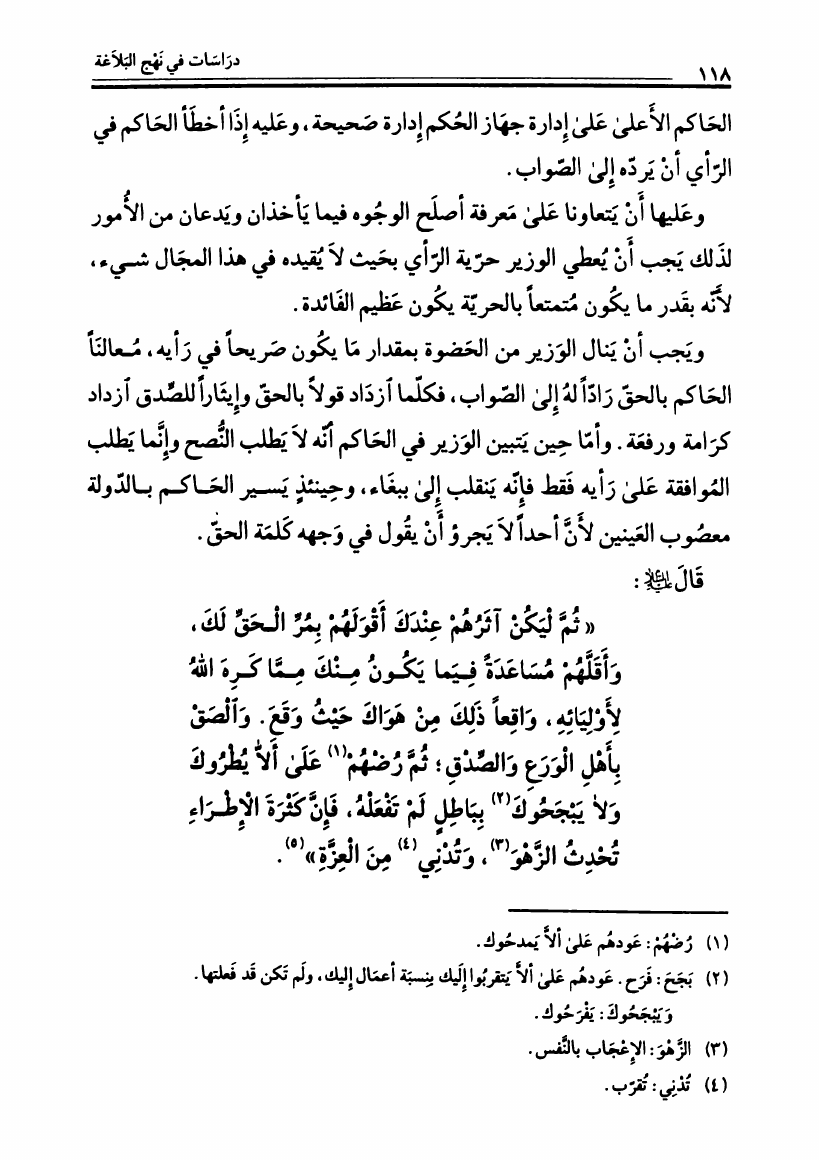 ١١٨
دِرَاسَات في نَهْج البَلاَغة
الحَاكم الأَعلىٰ عَلىٰ إدارة جهَاز الحُكم إدارة صَحيحة، وعَليه إذَا أخطَأ الحَاكم في
الرّأي أنْ يَردّه إلىٰ الصّواب.
وعَليها أنْ يَتعاونا عَلىٰ مَعرفة أصلَح الوجُوه فيما يَأخذان ويَدعان من الأمُور
لذَلك يَجب أنْ يُعطي الوزير حرّية الرّأي بحَيث لاَ يُقيده في هذا المجَال شيء،
لأنَّه بقَدر ما يكُون مُتمتعاً بالحريّة يكُون عَظيم الفَائدة.
ويَجب أنْ يَنال الوَزير من الحَضوة بمقدار مَا يكُون صَريحاً في رَأيه، مُعالنَاً
الحَاكم بالحقّ رَادّاً لهُ إلىٰ الصّواب، فكلّما آزدَاد قولاً بالحقّ وإيثَاراً للصِّدق آزداد
كرَامة ورفعَة. وأمّا حِين يَتبين الوَزير في الحَاكم أنّه لاَ يَطلب النُّصح وإنَّما يَطلب
المُوافقة عَلىٰ رَأيه فَقط فإنّه يَنقلب إلىٰ ببغَاء، وحِينئذٍ يَسير الحَاكم بالدّولة
معصُوب العَينين لأنَّ أحداً لاَ يَجرؤ أنْ يقُول في وَجهه كَلمَة الحقّ.
قَالَ عليه السلام :
« ثُمَّ لْيَكُنْ آثَرُهُمْ عِنْدَكَ أَقْوَلَهُمْ بِمُرِّ الْحَقِّ لَكَ،
وَأَقَلَّهُمْ مُسَاعَدَةً فِيَما يَكُونُ مِنْكَ مِمَّا كَرِهَ اللهُ
لِأَوْلِيَائِهِ، وَاقِعاً ذَلِكَ مِنْ هَوَاكَ حَيْثُ وَقَعَ. وَٱلْصَقْ
بِأَهْلِ الْوَرَعِ وَالصِّدْقِ؛ ثُمَّ رُضْهُمْ(١) عَلَىٰ أَلاَّ يُطْرُوكَ
وَلاَ يَبْجَحُوكَ(٢) بِبَاطِلٍ لَمْ تَفْعَلْهُ، فَإِنَّ كَثْرَةَ الْإِطْرَاءِ
تُحْدِثُ الزَّهْوَ(٣)، وَتُدْنِي(٤) مِنَ الْعِزَّةِ»(٥).
(١) رُضْهُمْ: عَودهُم عَلىٰ ألاَّ يَمدحُوك.
(٢) بَجَحَ: فَرَح. عَودهُم عَلىٰ ألاَّ يَتقربُوا إلَيك بِنسبَة أعمَال إليك، ولَم تَكن قَد فَعلتها.
وَيَبْجَحُوكَ: يَفْرَحُوك.
(٣) الزَّهْوَ: الإِعْجَاب بالنَّفس.
(٤) تُدْنِي: تُقرّب.